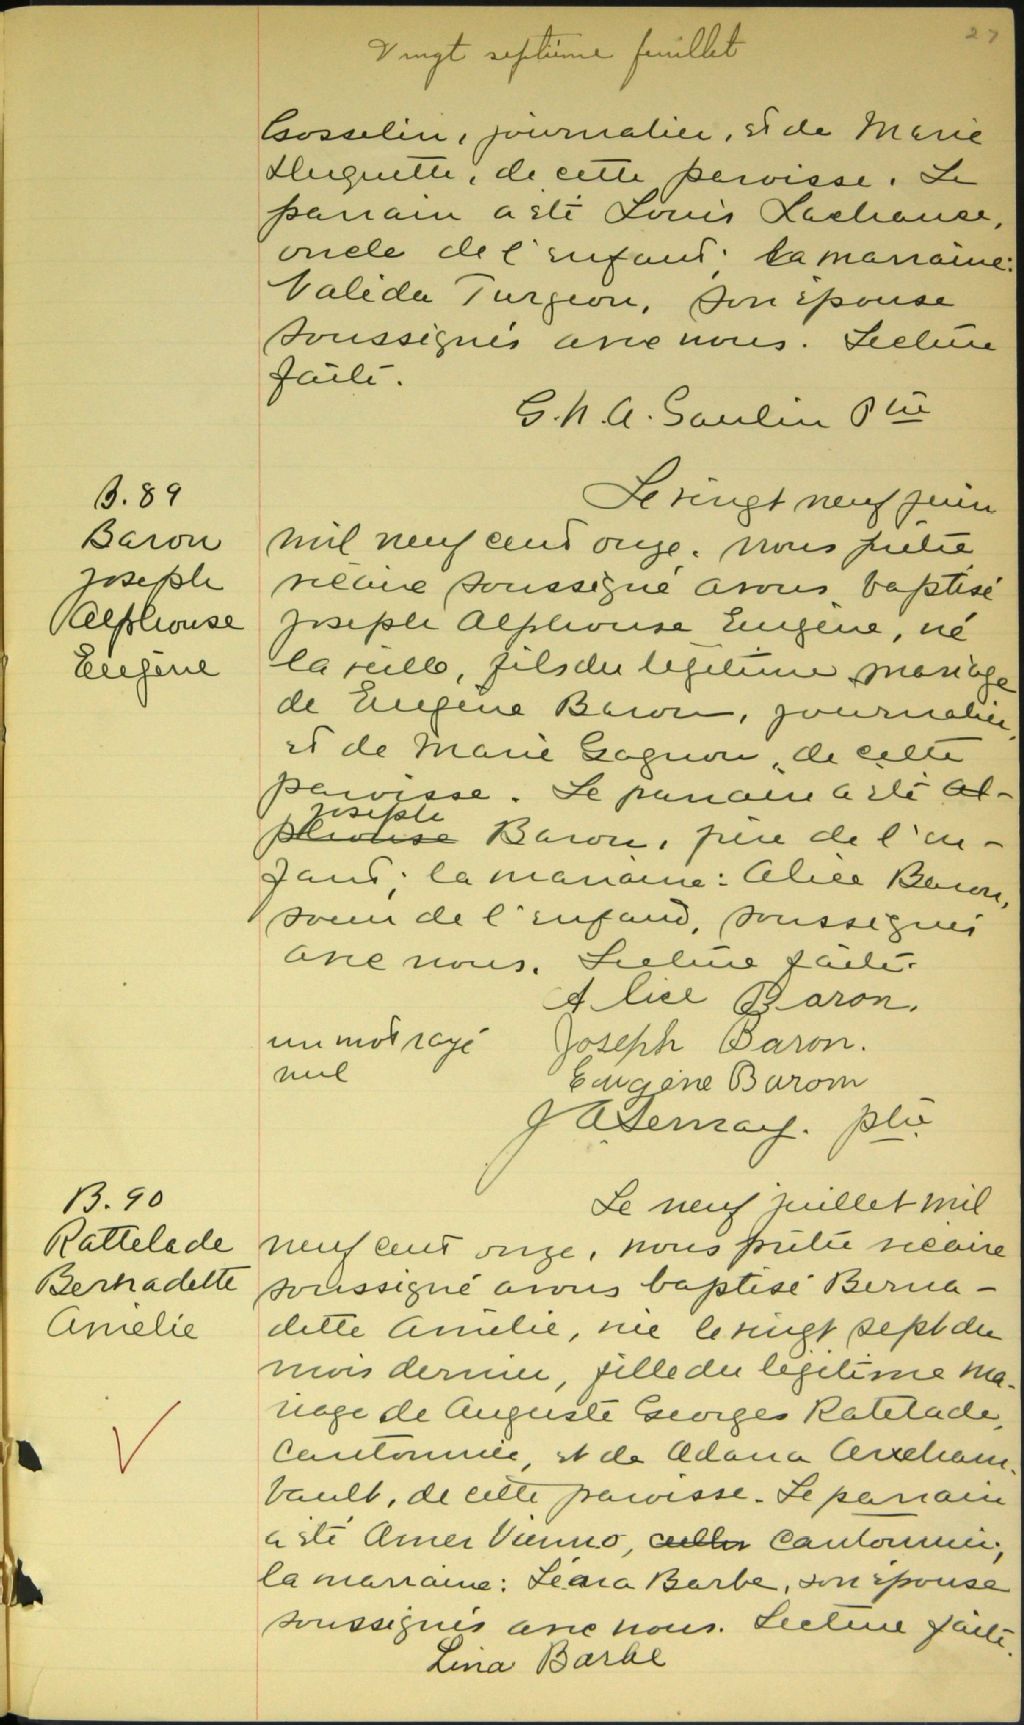 27
Vingt septième feuillet
Gosselin, journalier, et de Marie
Huguette, de cette paroisse. Le
parrain a été Louis Lachance,
oncle de l'enfant; la marraine:
Valéda Turgeon, son épouse
soussignés avec nous. Lecture
faite.
G. N. A. Gaulin Ptre
B. 89
Baron
Joseph
Alphonse
Eugène
Le vingt neuf juin
mil neuf cent onze, nous prêtre
vicaire soussigné avons baptisé
Joseph Alphonse Eugène, né
la veille, fils du légitime mariage
de Eugène Baron, journalier,
et de Marie Gagnon, de cette
paroisse. Le parrain a été Al-
joseph
phonse Baron, frère de l'en-
fant; la marraine: Alice Baron,
soeur de l'enfant, soussignés
avec nous. Lecture faite.
Alice Baron.
un mot rayé Joseph Baron.
nul Eugène Baron
J A Lemay. ptre
B. 90
Rattelade
Bernadette
Amélie
Le neuf juillet mil
neuf cent onze, nous prêtre vicaire
soussigné avons baptisé Berna-
dette Amélie, née le vingt sept du
mois dernier, fille du légitime ma-
riage de Auguste Georges Ratelade,
cantonnier, et de Adana Archam-
bault, de cette paroisse. Le parrain
a été Omer Vienno, cantonnier,
la marraine: Léna Barbe, son épouse
soussignés avec nous. Lecture faite.
Lina Barbe